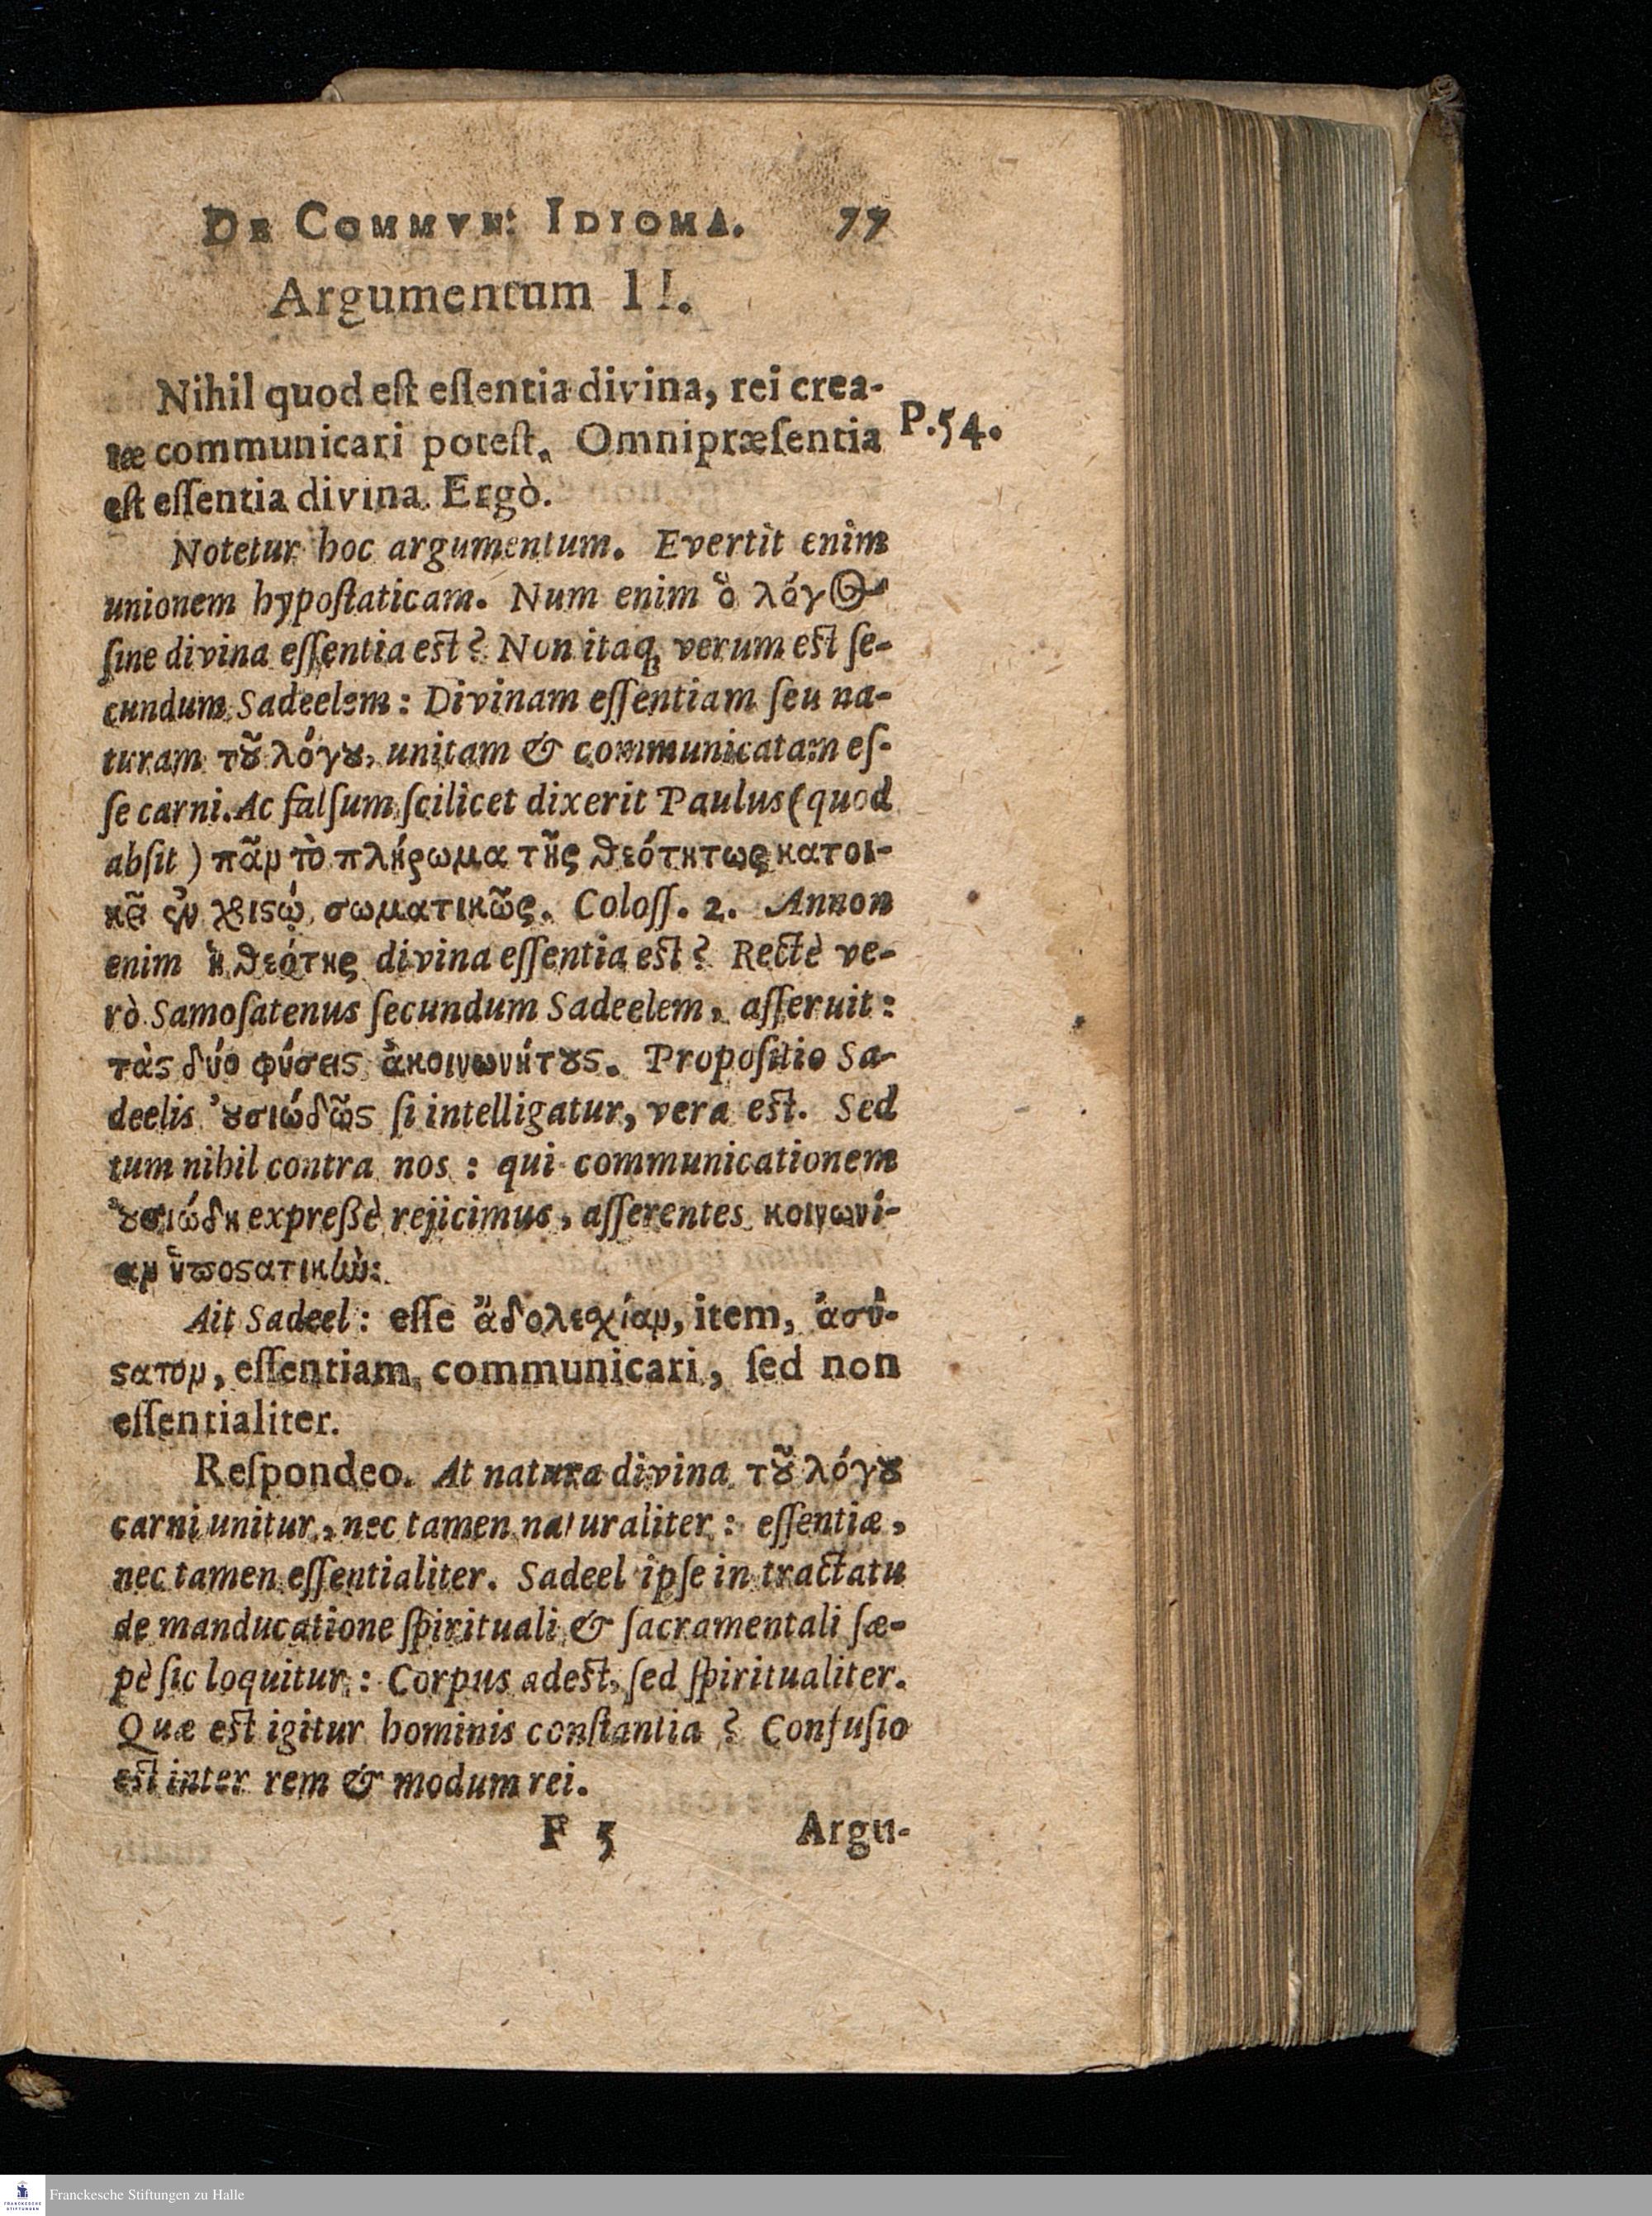 DE COMMVN: IDIOMA. 77
Argumentum II.
Nihil quod est essentia divina, rei crea-
tæ communicari potest. Omnipræsentia
P.54.
est essentia divina. Ergò.
Notetur hoc argumentum. Evertit enim
unionem hypostaticam. Num enim ὁ λόγος
sine divina essentia est? Non itaq; verum est se-
cundum Sadeelem: Divinam essentiam seu na-
turam τοῦ λόγου, unitam & communicatam es-
se carni. Ac falsum scilicet dixerit Paulus (quod
absit) πᾶν τὸ πλήρωμα τῆς θεότητως κατοι-
κεῖ ἐν χριστῷ σωματικῶς. Coloss. 2. Annon
enim ἡ θεότης divina essentia est? Rectè ve-
rò Samosatenus secundum Sadeelem, asseruit:
τὰς δύο φύσεις ἀκοινωνήτους. Propositio Sa-
deelis οὐσιώδῶς si intelligatur, vera est. Sed
tum nihil contra nos: qui communicationem
οὐσιώδη expreßè rejicimus, asserentes κοινωνί-
αν ὑποστατικήν:
Ait Sadeel: esse ἀδολεχίαν, item, ἀσύ-
στατον, essentiam communicari, sed non
essentialiter.
Respondeo. At natura divina τοῦ λόγου
carni unitur, nec tamen naturaliter: essentiæ,
nec tamen essentialiter. Sadeel ipse in tractatu
de manducatione spirituali & sacramentali sæ-
pè sic loquitur: Corpus adest, sed spiritualiter.
Quæ est igitur hominis constantia? Confusio
est inter rem & modum rei.
F 5 Argu-
FRANCKESCHE
STIFTUNGEN
Franckesche Stiftungen zu Halle